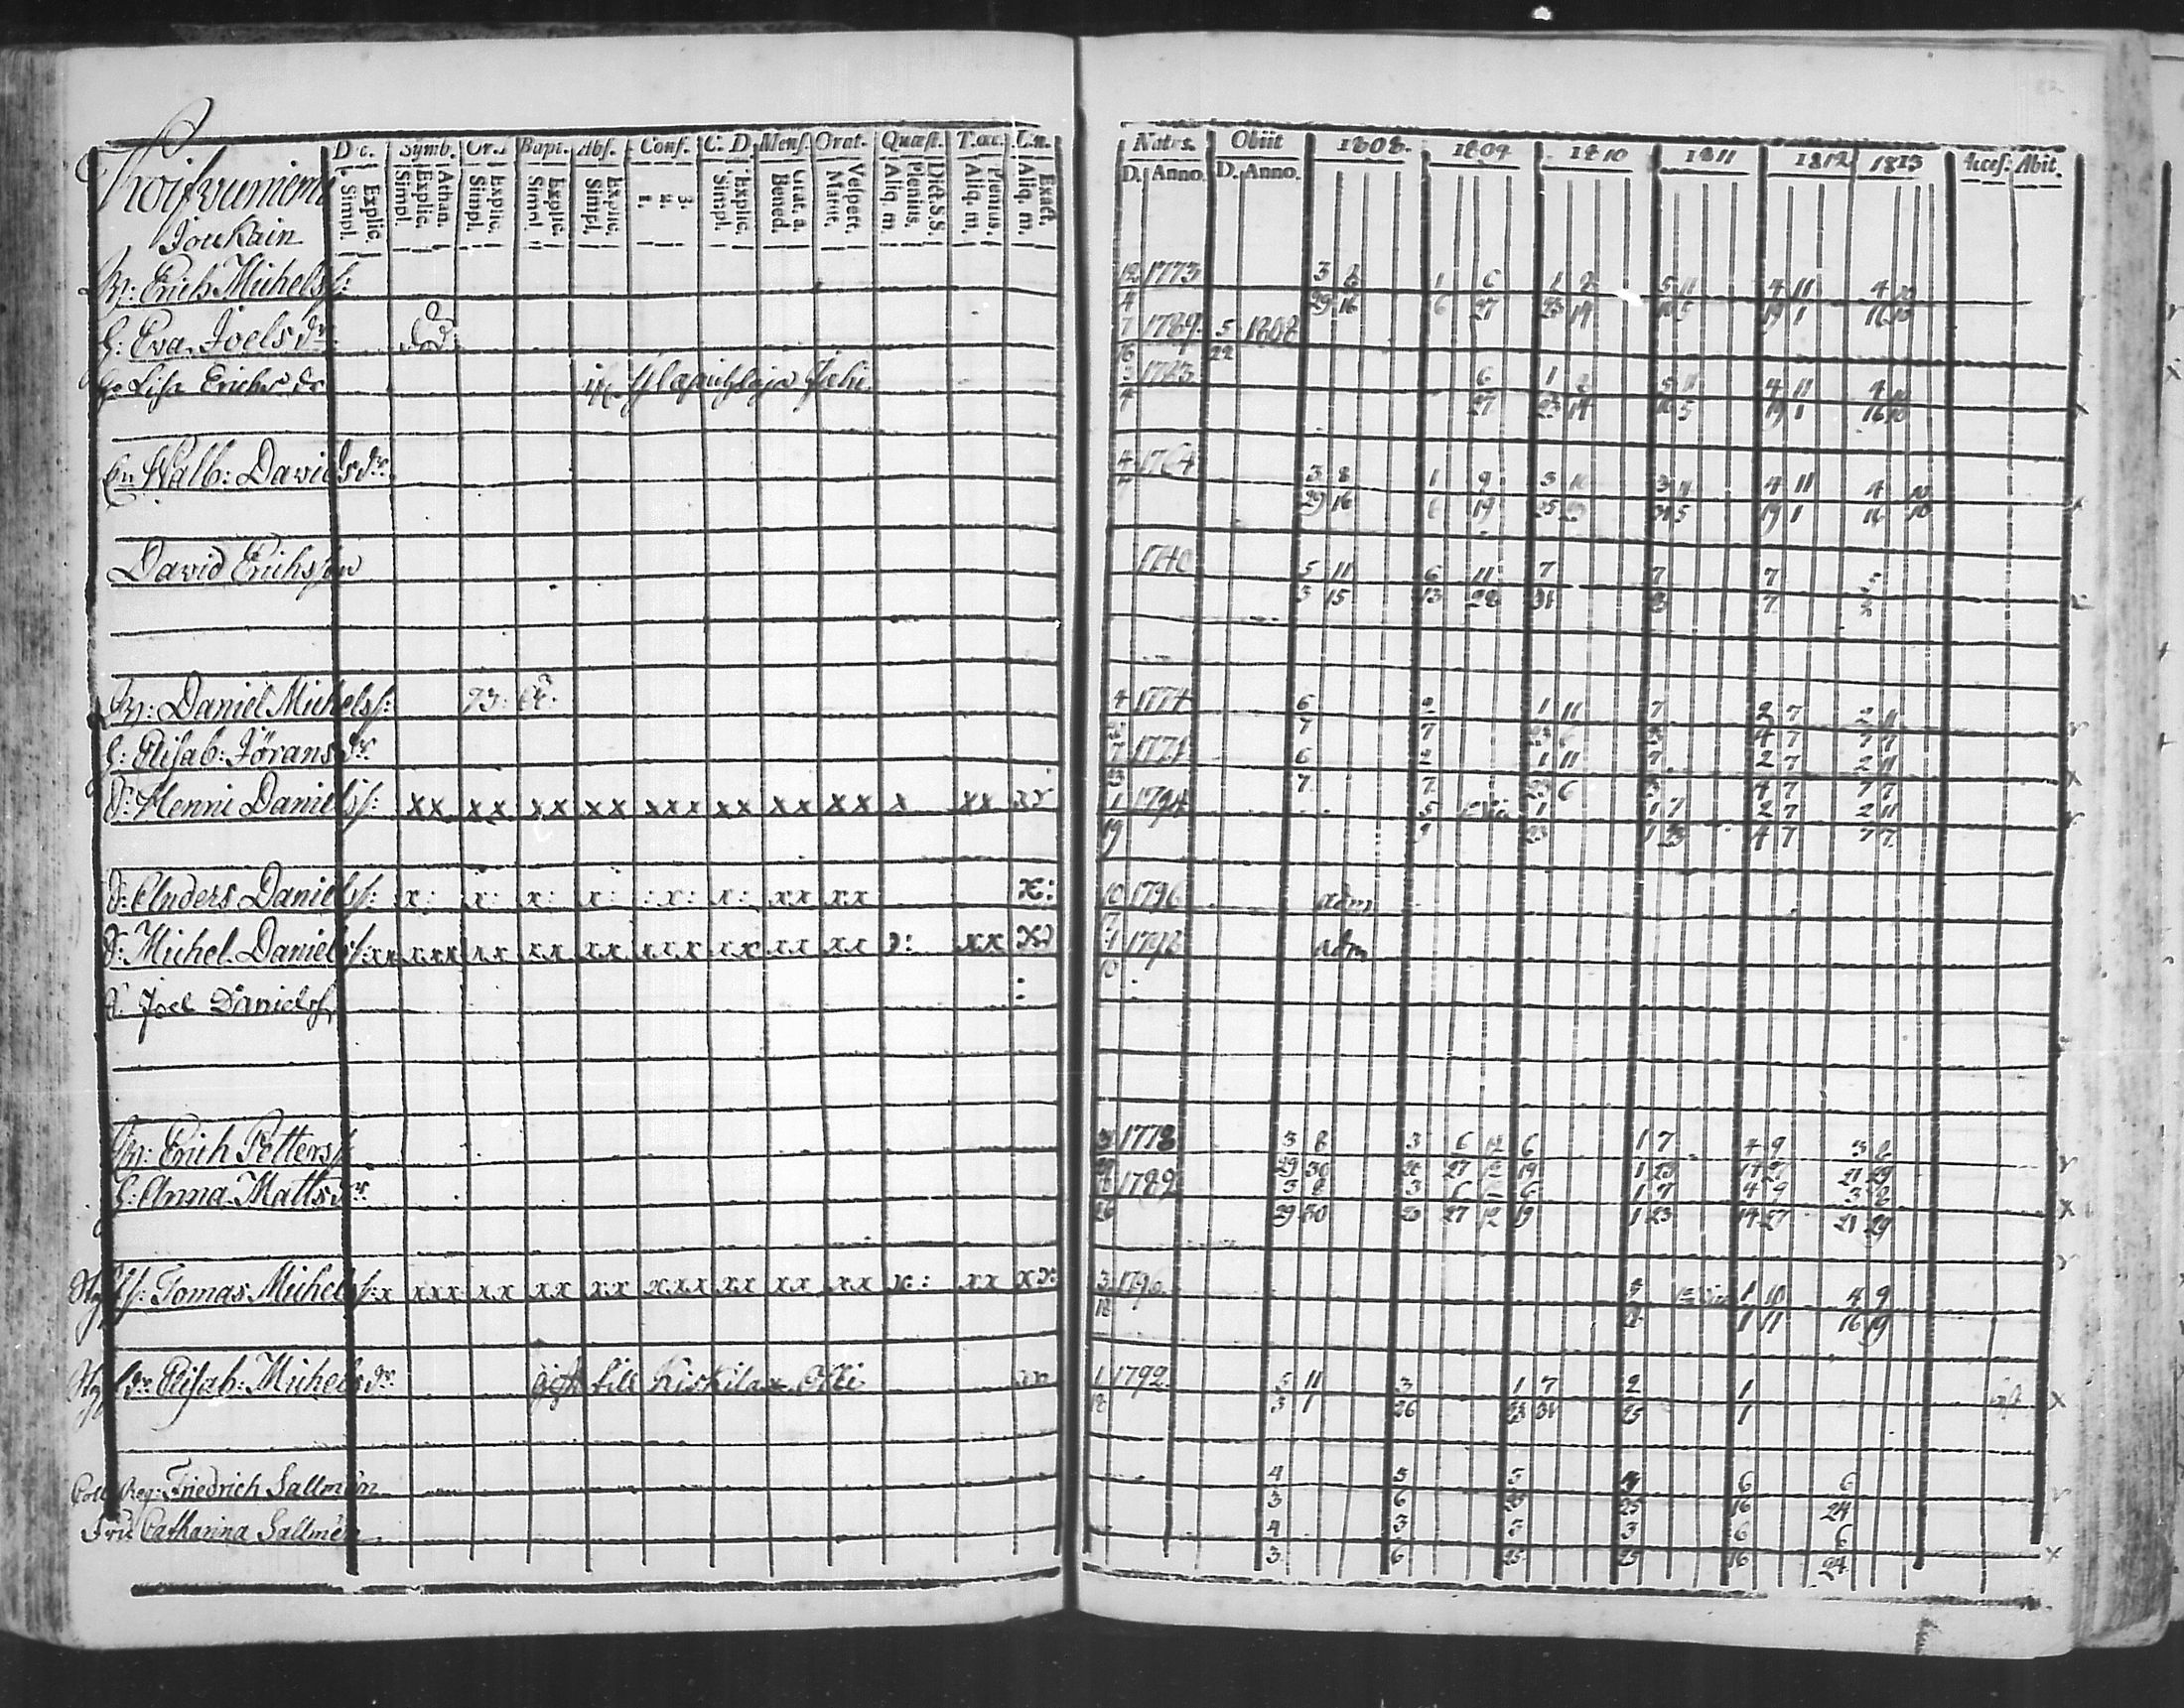 Joukain
Dec. Symb. Or.D Bapt. Abs. Conf. C. D. Mens. Orat. Quæst. T.œc. L.n.
Simpl. Explic. Simpl. Explic. Athan. Simpl. Explic. Simpl. Explic. Simpl. Explic. 1. 2. 3. Simpl. Explic. Bened. Grat. a. Matut. Vespert. Aliq. m. Plenius. Dict.S.S. Aliq. m. Plenius. Aliq. m. Exact.
Natus. Obiit 1808. 1809 1810 1811 1812 1813 Acces. Abit.
D. Anno. D. Anno.
B: Erich Michelss: 12 1773 3 8 1 6 1 2 5 11 4 11 4 10
4 29 16 6 27 23 19 16 5 19 1 16 10
H: Eva Joelsdr. död. 7 1789 5 1808
16 22
H: Lisa Erichsdr 3 1783 6 1 2 5 11 4 11 4 10
4 27 23 19 16 5 19 1 16 10
En. Walb: Davidsdr. 4 1764 3 8 1 9 3 10 3 11 4 11 4 10
29 16 6 19 25 31 5 19 1 16 10
David Erichsson 1740 5 11 6 11 7 7 7 5
3 15 13 28 31 3 7 2
B: Daniel Michelss: 73: 4 1774 6 2 1 11 7 2 7 2 11
7 7 23 6 3 4 7 7 7
H: Elisab: Jöransdr. 7 1771 6 2 1 11 7 2 7 2 11
23 7 7 23 6 3 4 7 7 7
S: Henni Danielss: xx xx xx xx xxx xx xx xx x xx xx 1 1794 5 1 1 7 2 7 2 11
19 9 23 1 23 4 7 7 7
S: Anders Danielss: x: x: x: x: :x: x: xx xx x: 10 1796 adm
S: Michel Danielss: xx xxx xx xx xx xxx xx xx xx x: xx 1 1798 adm
10
S. Joel Danielss,
B: Erich Petterss 3 1778 3 8 3 6 12 6 1 7 4 9 3 8
29 29 30 26 27 12 19 1 23 14 27 21 29
H: Anna Mattsdr. 1789 3 8 3 6 6 1 7 4 9 3 8
26 29 30 26 27 12 19 1 23 14 27 21 29
Tomas Michelss: x xxx xx xx xx xxx xx xx xx x: xx xx 3 1796 5 1 10 4 9
12 1 11 16 19
Elisab: Michelsdr. gift till Kiskila 1 1792 5 11 3 1 7 2 1
12 3 1 26 23 31 25 1
Friedrich Sallmén 4 3 3 3 6 6
3 6 25 25 16 24
Fru Catharina Sallmén 4 3 3 3 6 6
3 6 25 25 16 24